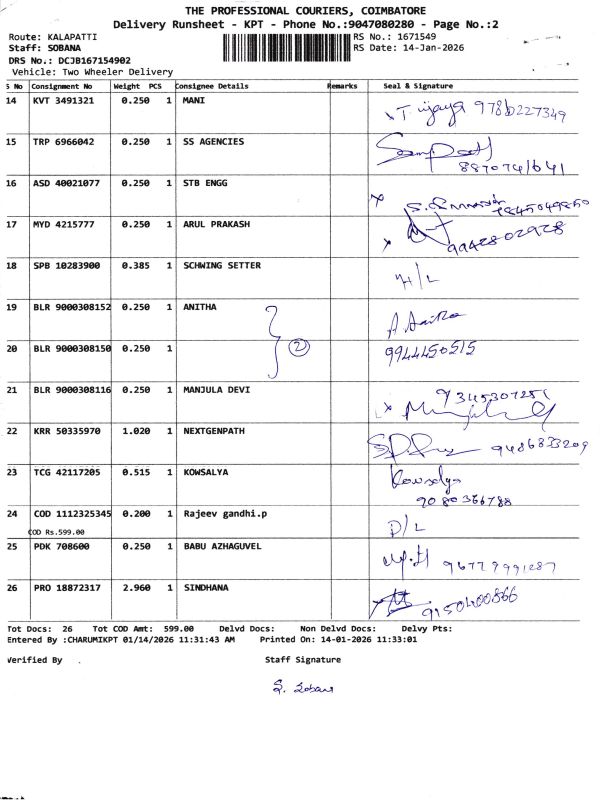 THE PROFESSIONAL COURIERS, COIMBATORE
Delivery Runsheet - KPT - Phone No.:9047080280 - Page No.:2
Route: KALAPATTI
RS No.: 1671549
Staff: SOBANA
RS Date: 14-Jan-2026
DRS No.: DCJB167154902
Vehicle: Two Wheeler Delivery
S No Consignment No Weight PCS Consignee Details Remarks Seal & Signature
14 KVT 3491321 0.250 1 MANI
15 TRP 6966042 0.250 1 SS AGENCIES
16 ASD 40021077 0.250 1 STB ENGG
17 MYD 4215777 0.250 1 ARUL PRAKASH 9942802928
18 SPB 10283900 0.385 1 SCHWING SETTER
19 BLR 9000308152 0.250 1 ANITHA
2
20 BLR 9000308150 0.250 1 9944450515
21 BLR 9000308116 0.250 1 MANJULA DEVI
22 KRR 50335970 1.020 1 NEXTGENPATH 9486833209
23 TCG 42117205 0.515 1 KOWSALYA Kowsalya
9080366788
24 COD 1112325345 0.200 1 Rajeev gandhi.p D/L
COD Rs.599.00
25 PDK 708600 0.250 1 BABU AZHAGUVEL
26 PRO 18872317 2.960 1 SINDHANA 9150400866
Tot Docs: 26 Tot COD Amt: 599.00 Delvd Docs: Non Delvd Docs: Delvy Pts:
Entered By :CHARUMIKPT 01/14/2026 11:31:43 AM Printed On: 14-01-2026 11:33:01
Verified By . Staff Signature